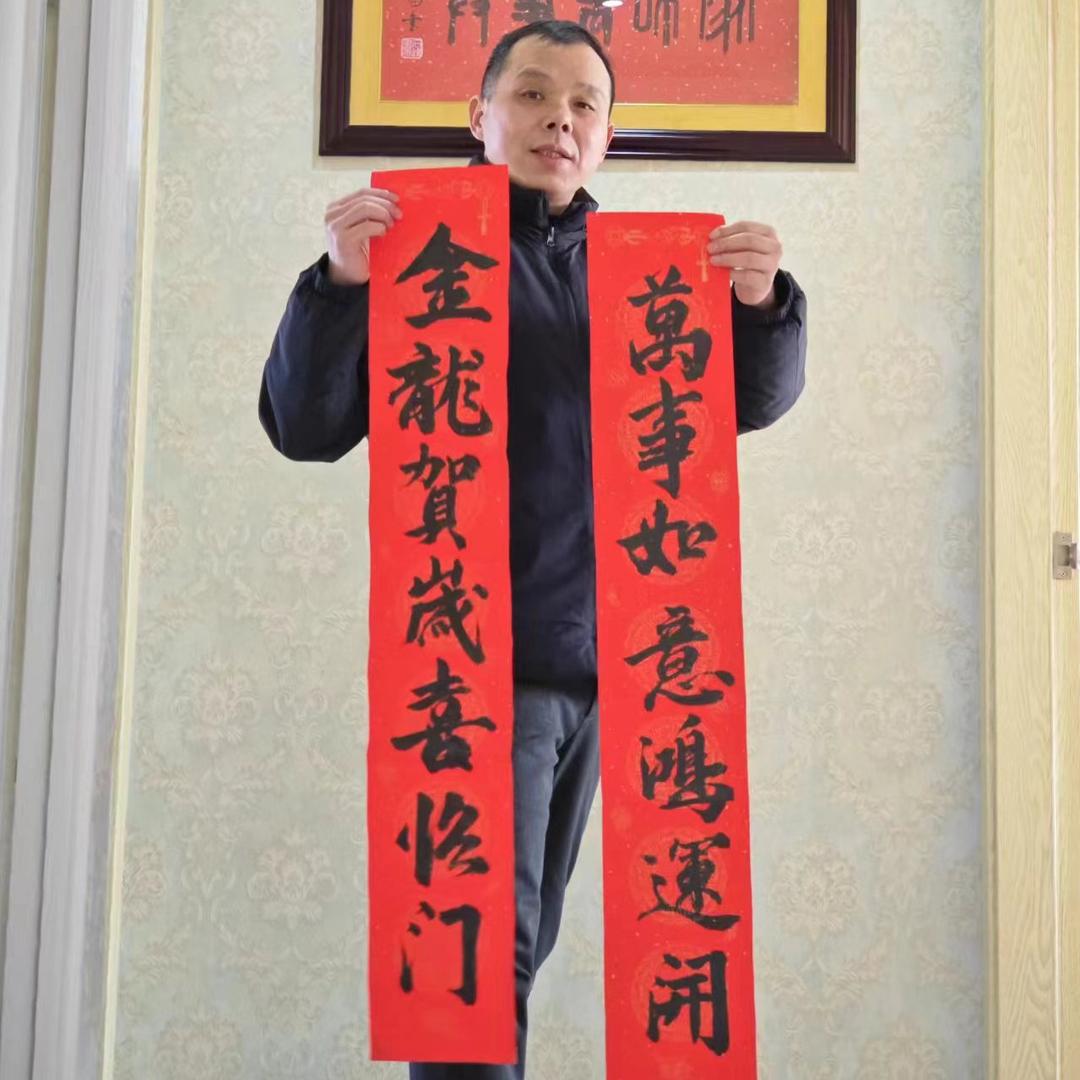 萬事如意鴻運開
金龍賀歲喜临门